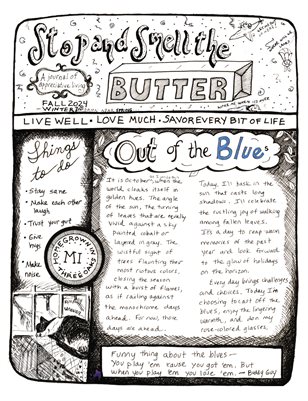 Stop and Smell the
BUTTER
A journal of
appreciative living
FALL 2024
WINTER
SPRING
LIVE WELL • LOVE MUCH • SAVOR EVERY BIT OF LIFE
Things
to do
• Stay sane
• Make each other
laugh
• Trust your gut
• Give
hugs
• Make
noise
HOMEGROWN IN
MI
THREE OAKS
Out of the Blues
It is October, when the
world cloaks itself in
golden hues. The angle
of the sun, the turning
of leaves that are equally
vivid against a sky
painted cobalt or
layered in gray. The
wistful sight of
trees flaunting their
most riotous colors,
closing the season
with a burst of flames,
as if railing against
the monochrome days
ahead. For now, those
days are ahead.
Today, I'll bask in the
sun that casts long
shadows. I'll celebrate
the rustling joy of walking
among fallen leaves.
It's a day to reap warm
memories of the past
year and look forward
to the glow of holidays
on the horizon.
Every day brings challenges
and choices. Today I'm
choosing to act off the
blues, enjoy the lingering
warmth, and don my
rose-colored glasses.
Funny thing about the blues—
You play 'em 'cause you got 'em. But
when you play 'em you lose 'em. — Buddy Guy